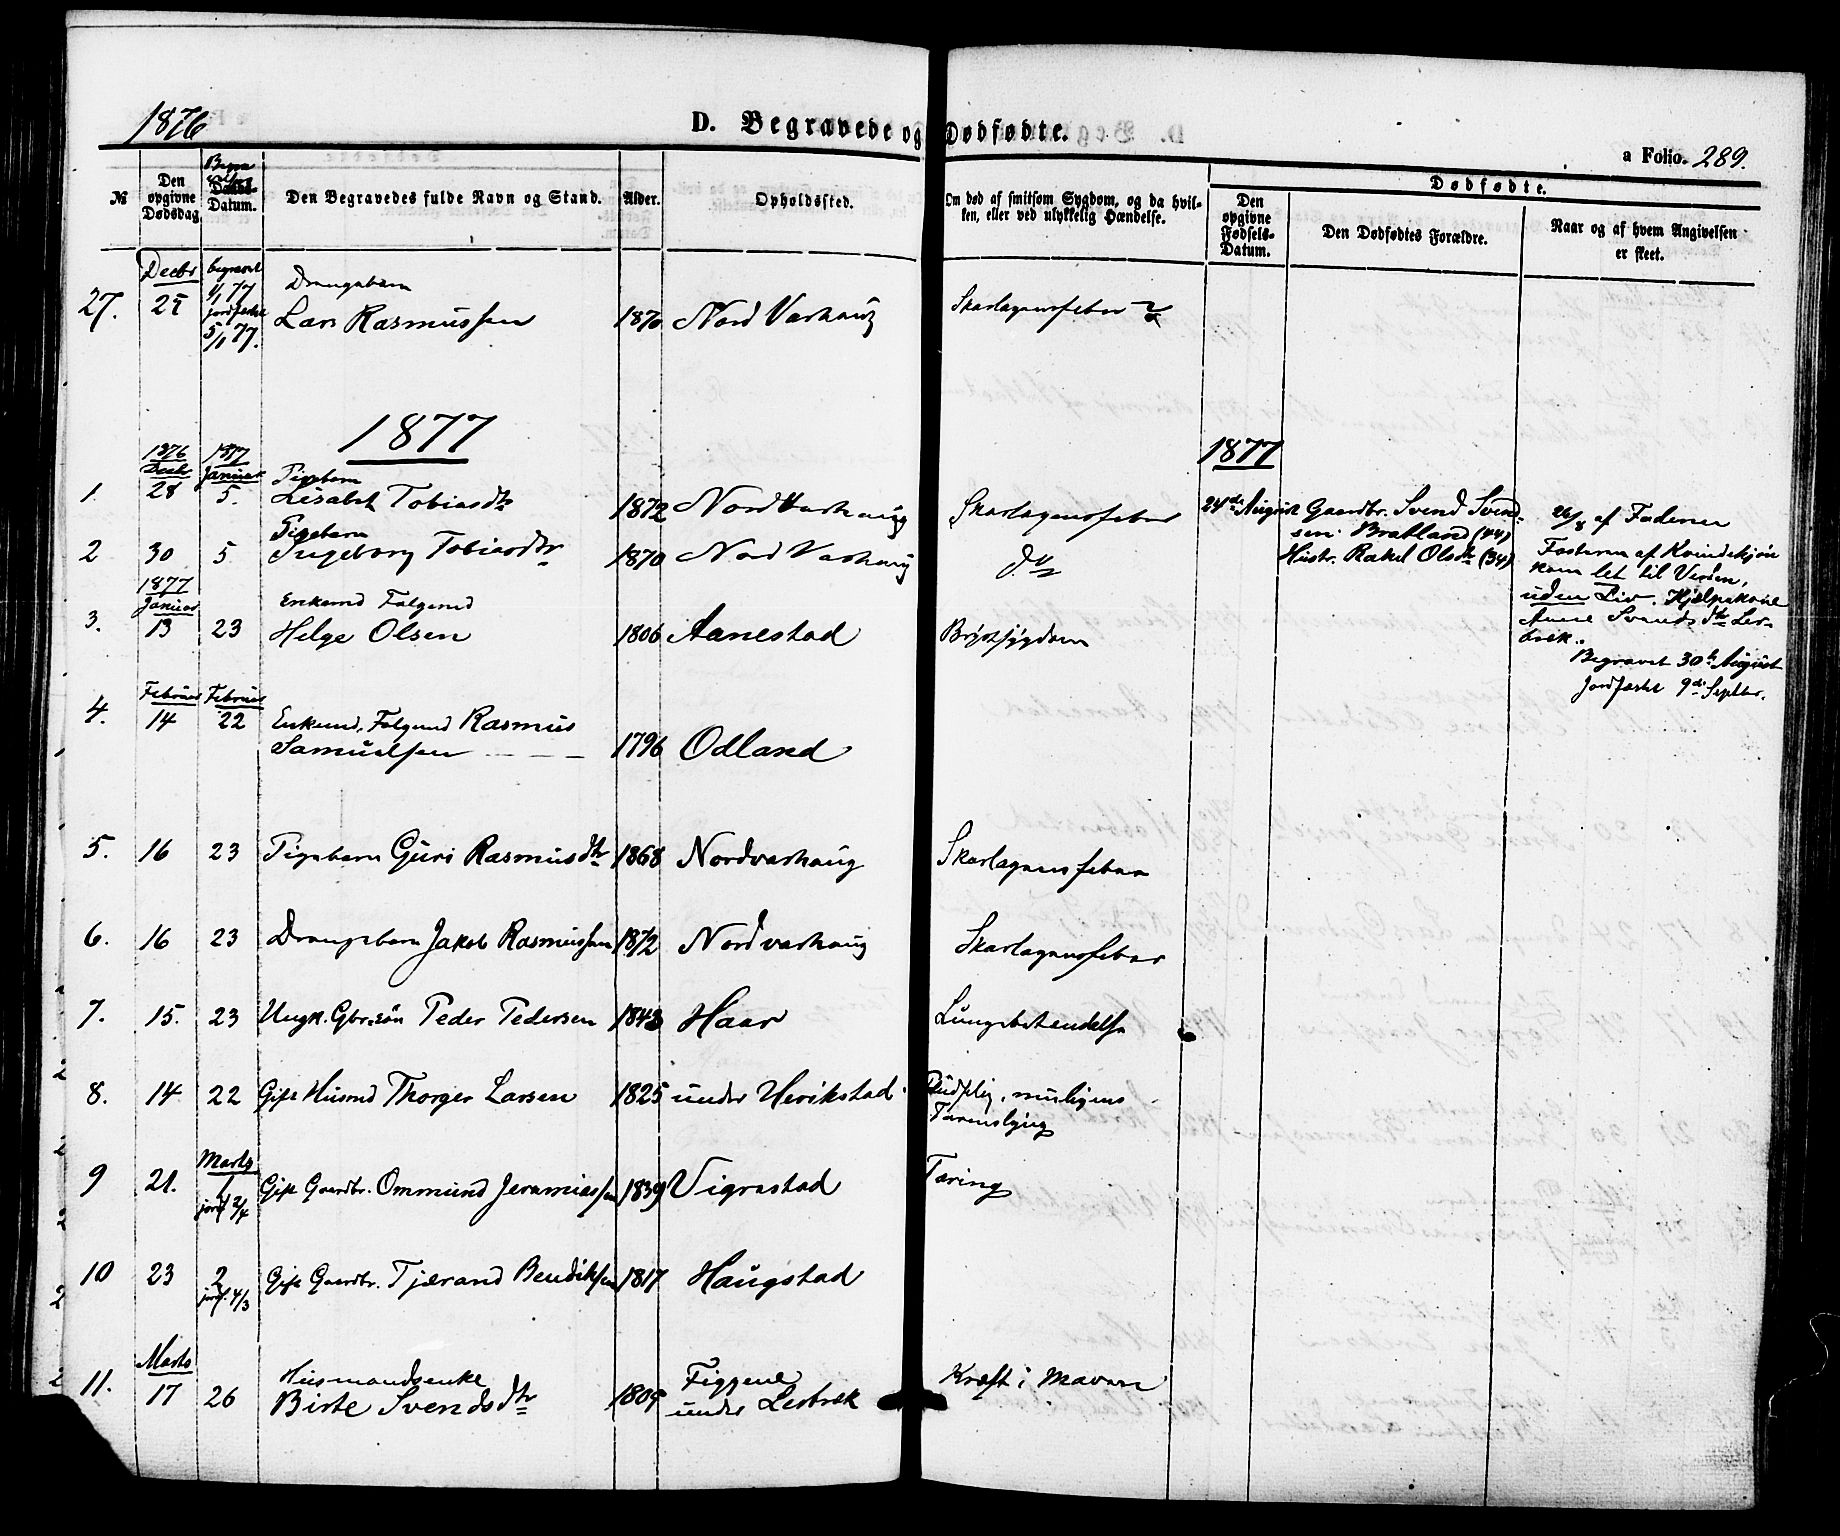 1876
D. Begravede og Dødfødte.
a Folio. 289.
№
Den opgivne Dødsdag.
Datum.
Den Begravedes fulde Navn og Stand.
Alder.
Opholdssted.
Om død af smitsom Sygdom, og da hvil-
ken, eller ved ulykkelig Hændelse.
Dødfødte.
Den opgivne Fødsels-Datum.
Den Dødfødtes Forældre.
Naar og af hvem Angivelsen
er skeet.
Decbr begravet
1/1 77 Drengebarn
27. 25 jordfæstet 5/1 77. Lars Rasmussen 1870 Nord Varhaug Skarlagensfeber
1877
1877
1876 1877
Decbr Januar Pigebarn
1. 28 5. Lisabet Tobiasdtr 1872 Nord Varhaug Skarlagensfeber
Pigebarn
2 30 5 Ingeborg Tobiasdtr 1870 Nord Varhaug do
24de August Gaardbr. Svend Svend-
sen Bratland (44)
Hustr. Rakel Olsdtr (34)
26/8 af Faderen
Fosteren af Kvindekjøn
kom let til Verden,
uden Liv. Hjælpekone
Anne Svendsdtr Ler-
bræk.
Begravet 30te August
Jordfæstet 9de Septbr.
1877
Januar Enkemd Folgemd
3. 13 23 Helge Olsen 1806 Aanestad Brystsygdom
Februar Februar
4. 14 22 Enkemd. Folgemd Rasmus
Samuelsen 1796 Odland
5. 16 23 Pigebarn Guri Rasmusdtr 1868 Nordvarhaug Skarlagensfeber
6. 16 23 Drengebarn Jakob Rasmussen 1872 Nordvarhaug Skarlagensfeber
7. 15. 23 Ungk. Gbr.søn Peder Pedersen 1843 Haar Lungebetændelse
8. 14 22 Gift Husmd Thorger Larsen 1825 under Herikstad Pludselig, muligens
Tarmslyng
Marts
9 21. 1 jordf 2/4 Gift Gaardbr. Ommund Jeremiassen 1839 Vigrestad Tæring
10 23 2 jordf. 4/3 Gift Gaardbr. Tjærand Bendiksen 1817 Haugstad
Marts Husmandsenke Figgene
11. 17 26 Birte Svendsdtr 1805 under Lerbræk Kræft i Maven